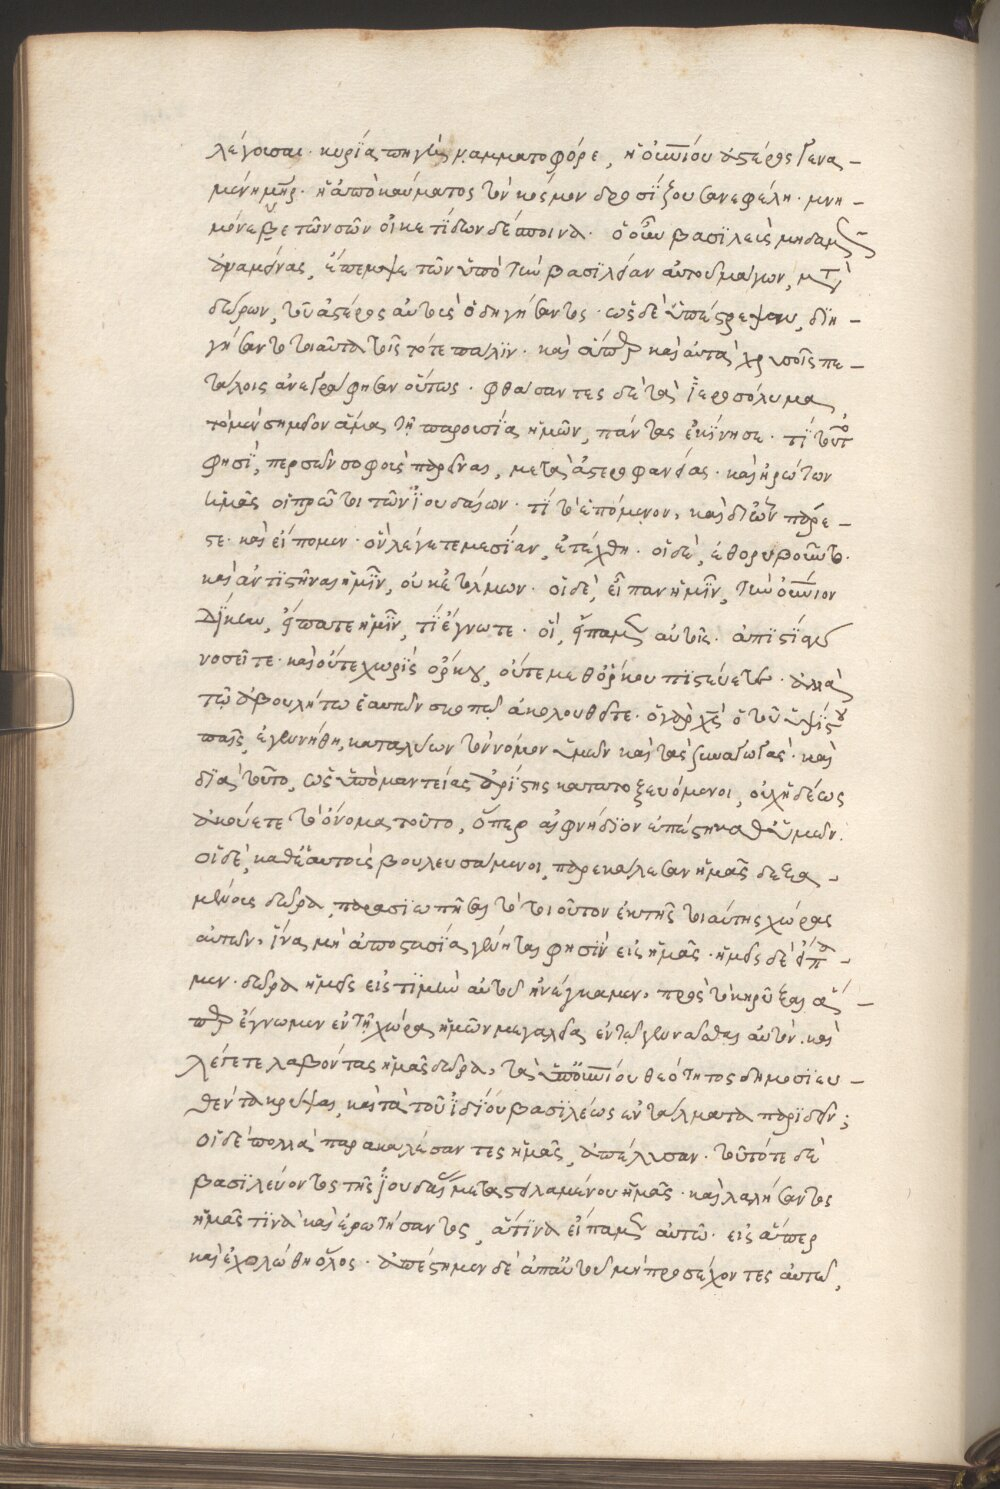 λέγουσαι· κυρία πηγὴ ναμματοφόρε, ἡ οὐνίου ἀστέρος γενα-
μένη μηρ. ἡ ἀπὸ καύματος τὸν κόσμον δροσίζουσα νεφέλη· μνη-
μόνευε τῶν σῶν οἰκετίδων δέσποινα. ὁ οὖν βασϊλεὺς μηδαμ
ἀναμείνας, ἔπεμψε τῶν ὑπὸ τὴν βασϊλείαν αὐτοῦ μάγων, μετὰ
δώρων, τοῦ ἀστέρος αὐτοὺς ὁδηγήσαντος. ὡς δὲ ὑπέστρεψαν, διη-
γήσαντο τοιαῦτα τοῖς τότε πάλϊν. καὶ ἅπερ καὶ αὐτὰ χρυσοῖς πε-
τάλοις ἀνεγράφησαν οὕτως. φθάσαντες δὲ τὰ ϊεροσόλυμα
τὸ μὲν σημεῖον ἅμα τῇ παρουσίᾳ ἡμῶν, πάντας ἐκίνησε. τί τοῦτο
φησὶ, περσῶν σοφοὺς παρεῖναι, μετὰ ἀστεροφανείας. καὶ ἠρώτων
ἡμᾶς οἱ πρῶτοι τῶν ϊουδαίων. τί τὸ ἑπόμενον, καὶ δι' ὧν πάρε-
στε. καὶ εἴπομεν. ὃν λέγετε μεσίαν, ἐτέχθη. οἱ δὲ, ἐθορυβοῦντο.
καὶ ἀντιστῆναι ἡμῖν, οὐκ ἐτόλμων. οἱ δὲ, εἶπαν ἡμῖν, τὴν οὐράνιον
δίκην, εἴπατε ἡμῖν, τί ἔγνωτε. οἱ, εἴπαμεν αὐτοῖς. ἀπιστίαν
νοσεῖτε. καὶ οὔτε χωρὶς ὅρκου, οὔτε μεθ' ὅρκου πιστεύετε. ἀλλὰ
τῷ ἀβουλήτῳ ἑαυτῶν σκοπῷ ἀκολουθεῖτε. ὁ γὰρ χς ὁ τοῦ ὑψίστου
παῖς, ἐγεννήθη, καταλύων τὸν νόμον ὑμῶν καὶ τὰς συναγωγάς. καὶ
διὰ τοῦτο, ὡς ὑπὸ μαντείας ἀρίστης κατατοξευόμενοι, οὐχ ἡδέως
ἀκούετε τὸ ὄνομα τοῦτο, ὅπερ αἰφνήδϊον ἐπέστη καθ' ὑμῶν.
οἱ δὲ, καθ' ἑαυτοὺς βουλευσάμενοι, παρεκάλεσαν ἡμᾶς δεξα-
μένους δῶρα, παρασιωπῆσαι τὸ τοιοῦτον ἐκ τῆς τοιαύτης χώρας
αὐτῶν, ἵνα μὴ ἀποστασία γένηται φησὶν εἰς ἡμᾶς. ἡμεῖς δὲ εἴπο-
μεν. δῶρα ἡμεῖς εἰς τιμὴν αὐτοῦ ἠνέγκαμεν, πρὸς τὸ κηρύξαι ἅ-
περ ἔγνωμεν ἐν τῇ χώρᾳ ἡμῶν μεγαλεῖα ἐν τῷ γεννᾶσθαι αὐτόν. καὶ
λέγετε λαβόντας ἡμᾶς δῶρα, τὰ ὑπὸ οὐνίου θεότητος δημοσιευ-
θέντα κρύψαι, καὶ τὰ τοῦ ϊδίου βασιλέως ἐντάλματα παριδεῖν;
οἱ δὲ πολλὰ παρακαλέσαντες ἡμᾶς, ἀπέλυσαν. τοῦ τότε δὲ
βασιλεύοντος τῆς ϊουδαίας μεταστειλαμένου ἡμᾶς. καὶ λαλήσαντος
ἡμᾶς τινὰ καὶ ἐρωτήσαντος, ἅτινα εἴπαμεν αὐτῷ. εἰς ἅπερ
καὶ ἐχολώθη ὅλος. ἀπέστημεν δὲ ἀπ' αὐτοῦ μὴ προσέχοντες αὐτῷ,